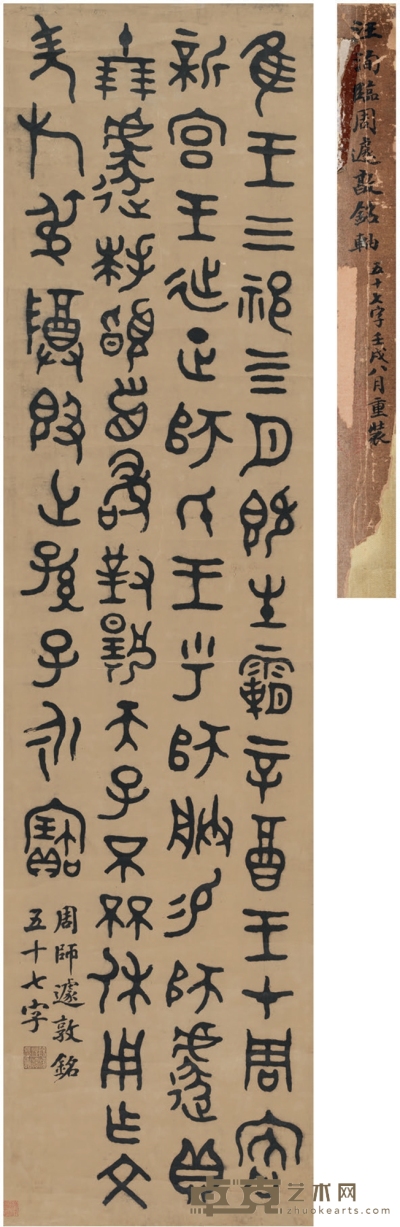 隹王三祀四月既生霸辛酉王才周客
新宮王延正師氏王乎師朕易師遽貝
十朋遽拜𩒨首敢對揚天子不𠦪休用乍文
考旄叔尊𣪘世孫子永寶
周師遽敦銘
五十七字
汪洵臨周遽敦銘軸 五十七字壬戌八月重裝
卓克艺术网
www.zhuokearts.com